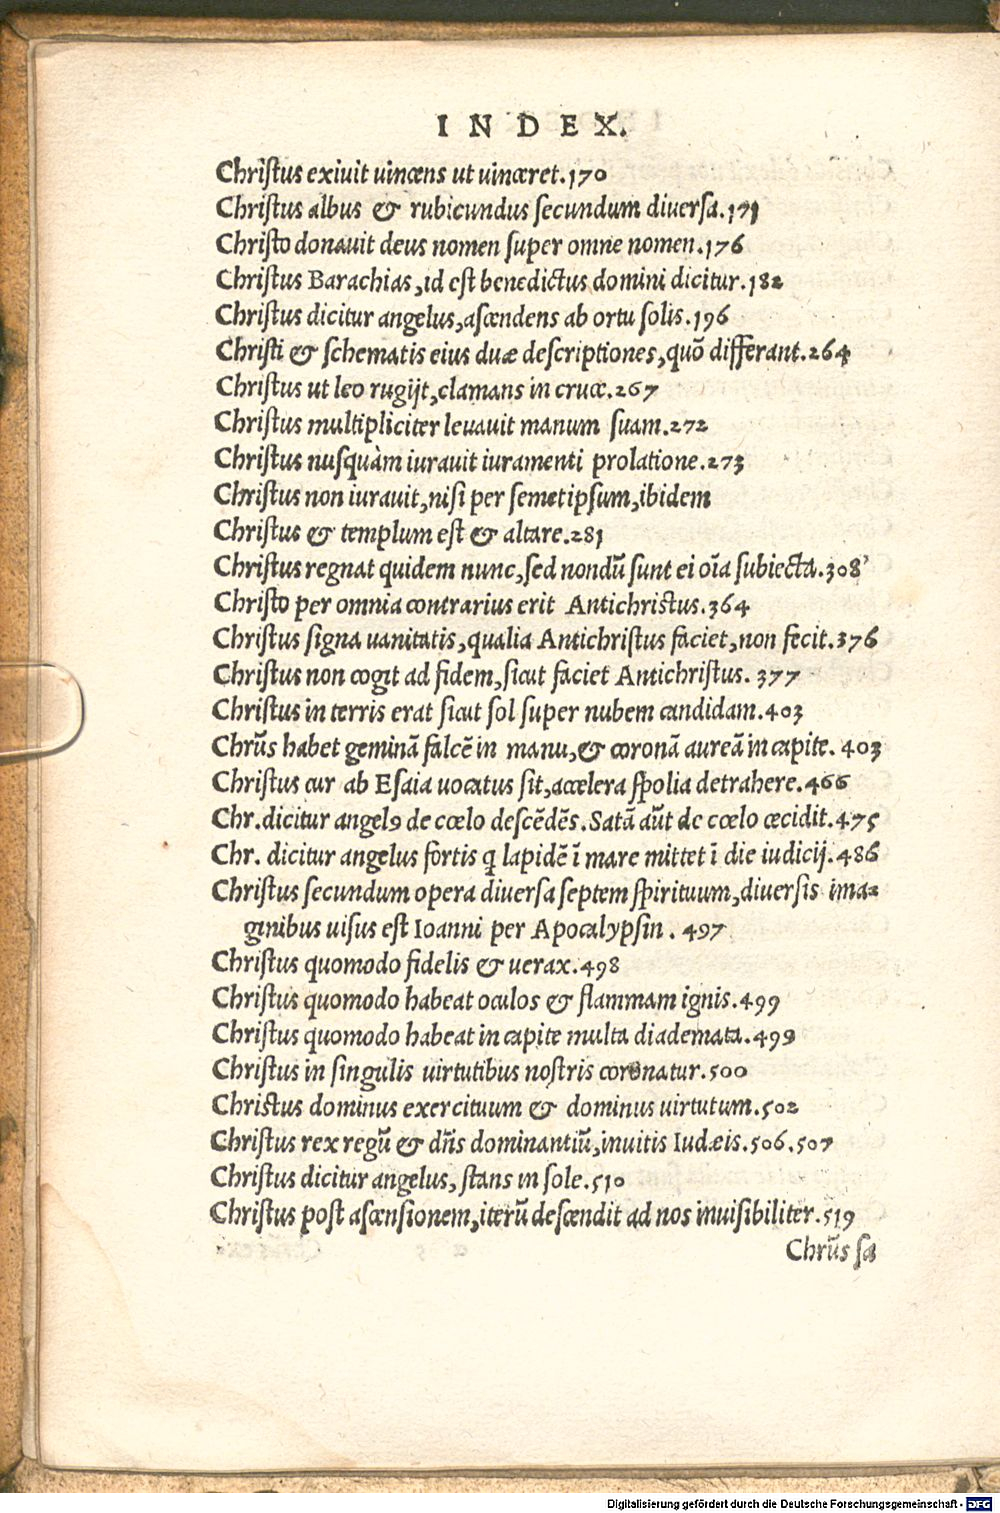 INDEX.
Christus exiuit uincens ut uinceret.170
Christus albus & rubicundus secundum diuersa.171
Christo donauit deus nomen super omne nomen.176
Christus Barachias, id est benedictus domini dicitur.182
Christus dicitur angelus, ascendens ab ortu solis.196
Christi & schematis eius duæ descriptiones, quõ differant.264
Christus ut leo rugijt, clamans in cruce.267
Christus multipliciter leuauit manum suam.272
Christus nusquàm iurauit iuramenti prolatione.273
Christus non iurauit, nisi per semetipsum, ibidem
Christus & templum est & altare.281
Christus regnat quidem nunc, sed nondũ sunt ei oĩa subiecta.308
Christo per omnia contrarius erit Antichristus.364
Christus signa uanitatis, qualia Antichristus faciet, non fecit.376
Christus non cogit ad fidem, sicut faciet Antichristus. 377
Christus in terris erat sicut sol super nubem candidam.403
Chrũs habet geminã falcẽ in manu, & coronã aureã in capite. 403
Christus cur ab Esaia uocatus sit, accelera spolia detrahere.466
Chr. dicitur angelꝰ de cœlo descẽdẽs. Satã aũt de cœlo cecidit.475
Chr. dicitur angelus fortis q̃ lapidẽ ĩ mare mittet ĩ die iudicij.486
Christus secundum opera diuersa septem spirituum, diuersis ima-
ginibus uisus est Ioanni per Apocalypsin. 497
Christus quomodo fidelis & uerax.498
Christus quomodo habeat oculos & flammam ignis.499
Christus quomodo habeat in capite multa diademata.499
Christus in singulis uirtutibus nostris coronatur.500
Christus dominus exercituum & dominus uirtutum.502
Christus rex regũ & dñs dominantiũ, inuitis Iudæis.506.507
Christus dicitur angelus, stans in sole.510
Christus post ascensionem, iterũ descendit ad nos inuisibiliter.519
Chrũs sa
Digitalisierung gefördert durch die Deutsche Forschungsgemeinschaft - DFG